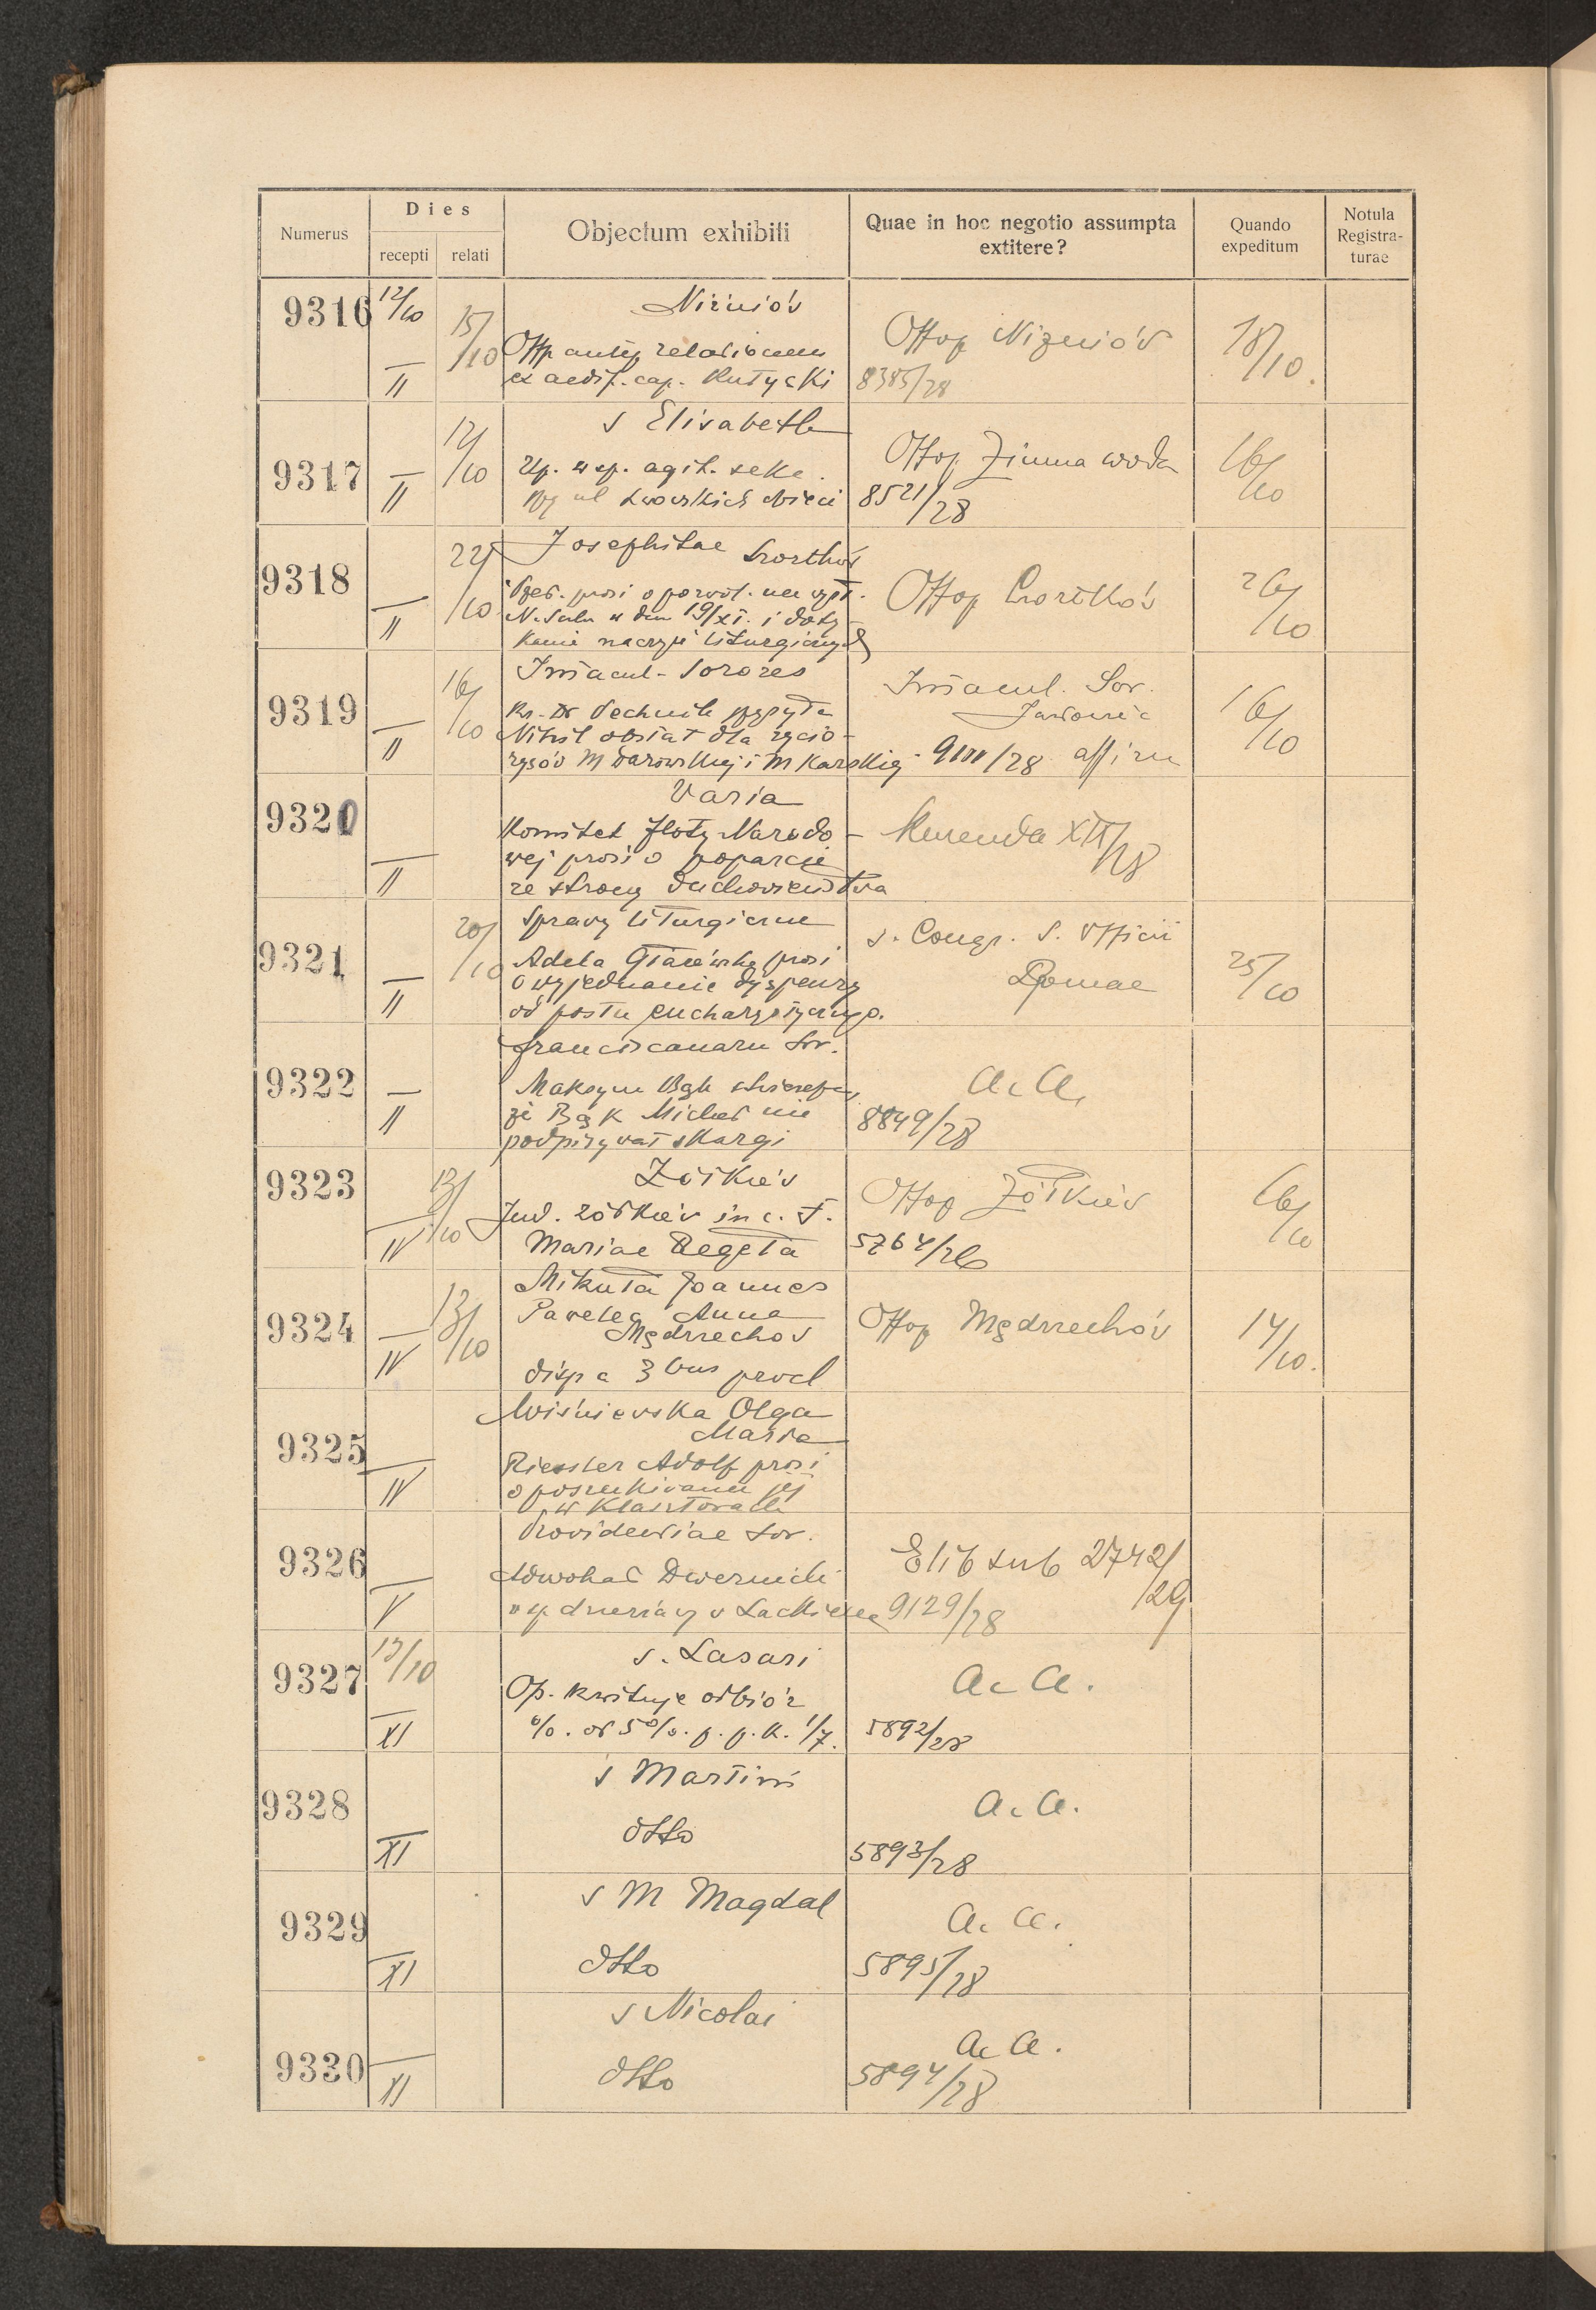 Numerus
Dies
recepti
relati
Objectum exhibiti
Quae in hoc negotio assumpta
extitere?
Quando
expeditum
Notula
Registra-
turae
9316 12/10 15/10
II
Niżniów
relationem
ex aedif. cap. Kutyski
Offop Niżniów
8385/28
18/10.
9317 II 12/10
s Elisabeth
Up. w sp. agit. sekc.
ul Lwowskich dzieci
Offop Zimna woda
8521/28
16/10
9318 II 22/10
Josephitae
prosi o pozwol. na
N. Sakr w dniu 19/XI. i doty-
kanie naczyń liturgicznych
Offop Czortków
26/10
9319 II 16/10
Immacul. Sorores
Ks. Dr Pechnik
Nihil obstat dla życio-
rysów M Darowskiej i M Karskiej
Immacul. Sor.
Jazłowiec
9111/28 affirm
16/10
9320 II
Varia
Komitet Floty Narodo-
wej prosi o poparcie
ze strony duchowieństwa
Kurenda XII/28
9321 II 20/10
Sprawy liturgiczne
Adela prosi
o wyjednanie dyspenzy
od postu eucharystycznego.
S. Congr. S. Officii
Romae
25/10
9322 II
Franciscanarum Sor.
Maksym Bąk
że Bąk Michał nie
podpisywał skargi
a. a.
8849/28
9323 IV 13/10
Żółkiew
Jud. Żółkiew in c. F.
Mariae Regeta
Offop Żółkiew
5764/26
16/10
9324 IV 13/10
Mikuła Joannes
Pawelec Anna
Mędrzechów
disp a 3bus procl
Offop Mędrzechów
14/10.
9325 IV
Wiśniewska Olga
Maria
Riessler Adolf prosi
o poszukiwanie jej
w klasztorach
9326 V
Providentiae Sor.
Adwokat Dwernicki
w sp dzierżawy
Elib sub 2742/29
9129/28
9327 13/10
XI
s. Lasari
Op. kwituje odbiór
%. od 5%. p. p. k. 1/7.
a. a.
5892/28
9328 XI
s Martini
dtto
a. a.
5893/28
9329 XI
s M Magdal
dtto
a. a.
5895/28
9330 XI
s Nicolai
dtto
a. a.
5894/28